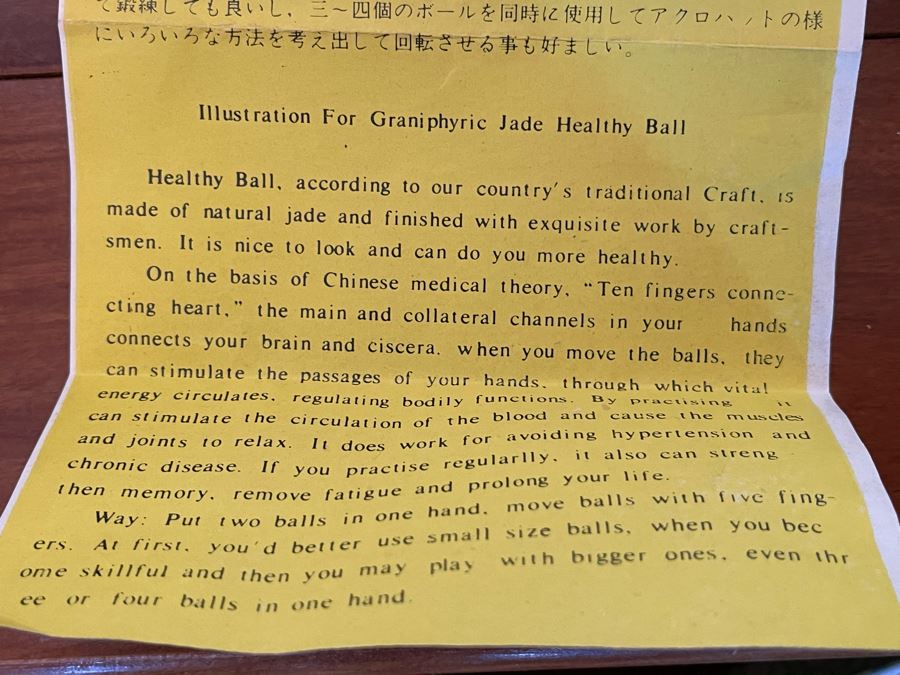 て鍛練しても良いし、三〜四個のボールを同時に使用してアクロバットの様
にいろいろな方法を考え出して回転させる事も好ましい。
Illustration For Graniphyric Jade Healthy Ball
Healthy Ball, according to our country's traditional Craft, is
made of natural jade and finished with exquisite work by craft-
smen. It is nice to look and can do you more healthy.
On the basis of Chinese medical theory, "Ten fingers conne-
cting heart," the main and collateral channels in your hands
connects your brain and ciscera. when you move the balls, they
can stimulate the passages of your hands, through which vital
energy circulates, regulating bodily functions. By practising it
can stimulate the circulation of the blood and cause the muscles
and joints to relax. It does work for avoiding hypertension and
chronic disease. If you practise regularlly, it also can streng-
then memory, remove fatigue and prolong your life.
Way: Put two balls in one hand, move balls with five fing-
ers. At first, you'd better use small size balls, when you bec
ome skillful and then you may play with bigger ones, even thr
ee or four balls in one hand.